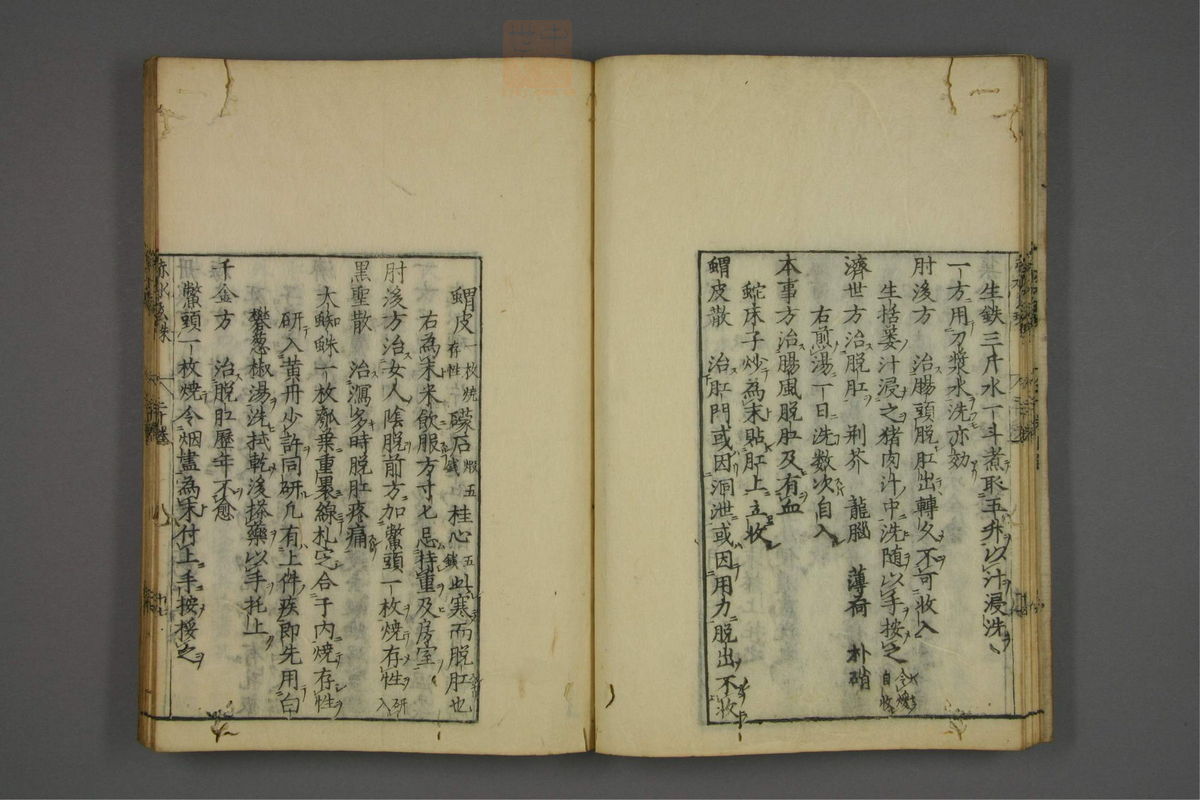 生鉄三斤水一斗煮取五升以汁浸洗
一方用刀漿水洗亦効
肘後方　治腸頭脱肛出轉久不可收入
生括蔞汁浸之猪肉汁中洗随以手按之
自收
濟世方治脱肛　荆芥　龍腦　薄荷　朴硝
右煎湯一日洗数次自入
本事方治腸風脱肛及有血
蛇床子炒為末貼肛上立收
蝟皮散　治肛門或因洞泄或因用力脱出不收
蝟皮一枚焼存性　礞石煅五錢　桂心五錢　此寒而脱肛也
右為末米飲服方寸七忌持重及房室
肘後方治女人陰脱前方加鱉頭一枚焼存性研入
黒聖散　治瀉多時脱肛疼痛
大蜘蛛一枚瓠葉重裹線札定合子内焼存性
研入黄丹少許同研凡有上件疾即先用白
礬葱椒湯洗拭乾後搽藥以手托上
千金方　治脱肛歴年不愈
鱉頭一枚焼令烟盡為末付上手按挼之
赤水玄珠